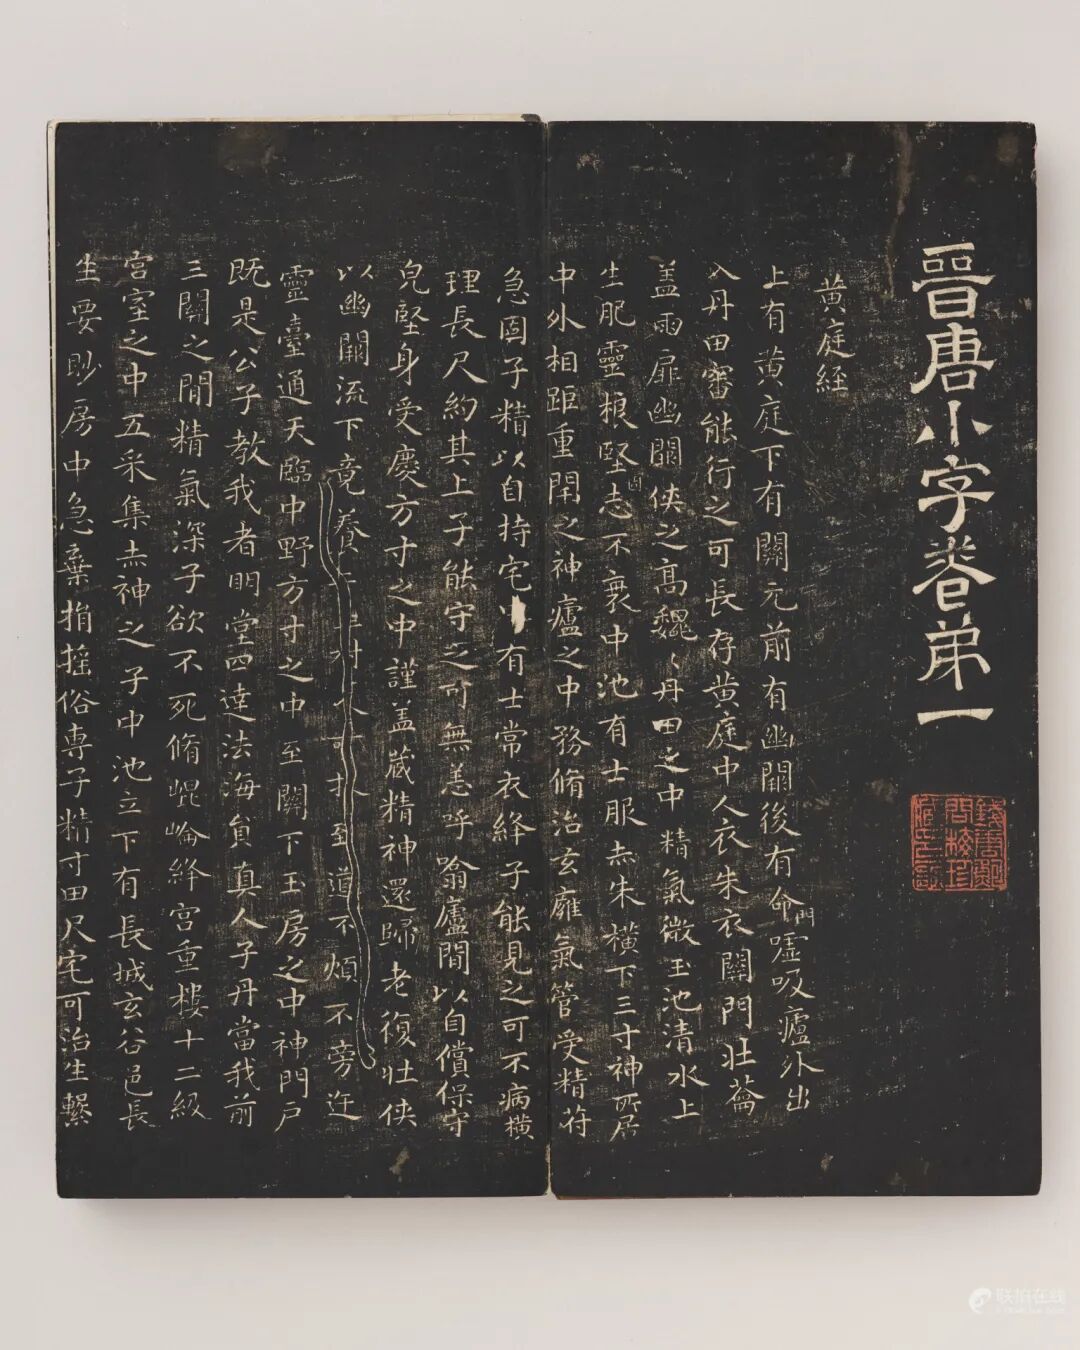 晉唐小字卷弟一
黄庭経
上有黄庭下有關元前有幽闕後有命門嘘吸廬外出
入丹田審能行之可長存黄庭中人衣朱衣關門壯蘥
盖兩扉幽闕侠之髙巍〻丹田之中精氣微玉池清水上
生肥靈根堅固志不衰中池有士服赤朱橫下三寸神所居
中外相距重閇之神廬之中務脩治玄廱氣管受精苻
急固子精以自持宅中有士常衣絳子能見之可不病橫
理長尺約其上子能守之可無恙呼噏廬閒以自償保守
皃堅身受慶方寸之中謹盖蔵精神還歸老復壯侠
以幽闕流下竟養 至道不煩不旁迕
靈臺通天臨中野方寸之中至關下玉房之中神門戸
既是公子教我者明堂四達法海員真人子丹當我前
三關之閒精氣深子欲不死脩崐崘絳宫重樓十二級
宫室之中五采集赤神之子中池立下有長城玄谷邑長
生要眇房中急棄捐揺俗専子精寸田尺宅可治生繫